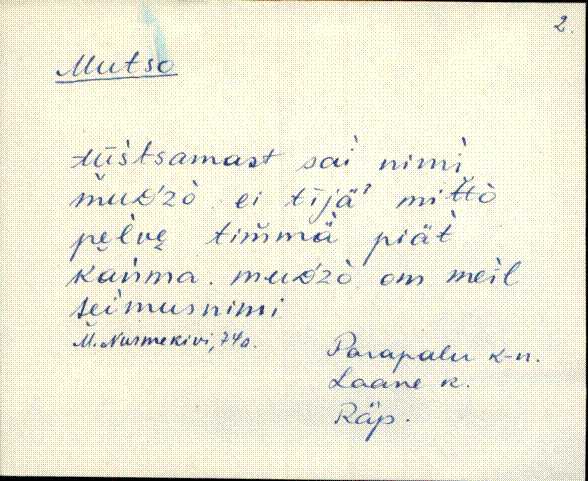 2.
Mutso
tūs̀tsamast sai nimi
mud'zò. ei tījä' mittò
pelve timmä piät
kańma. mud'zò om meil
seimusnimi
M. Nurmekivi, 74a.
Parapalu k-n.
Laane k.
Räp.